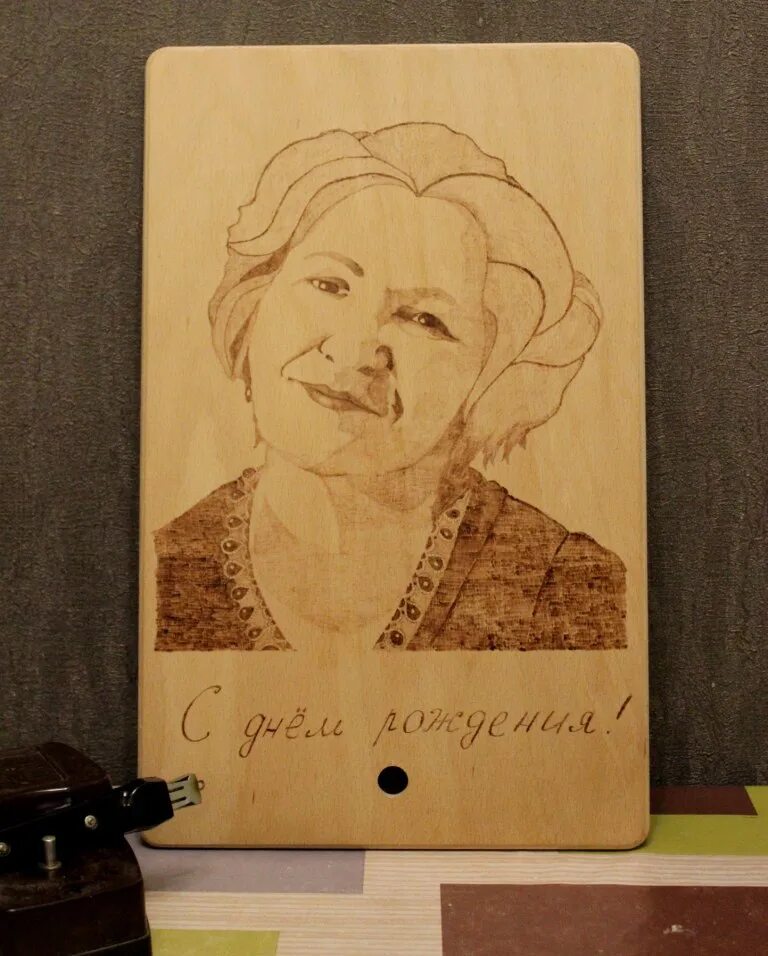 С днём рождения!